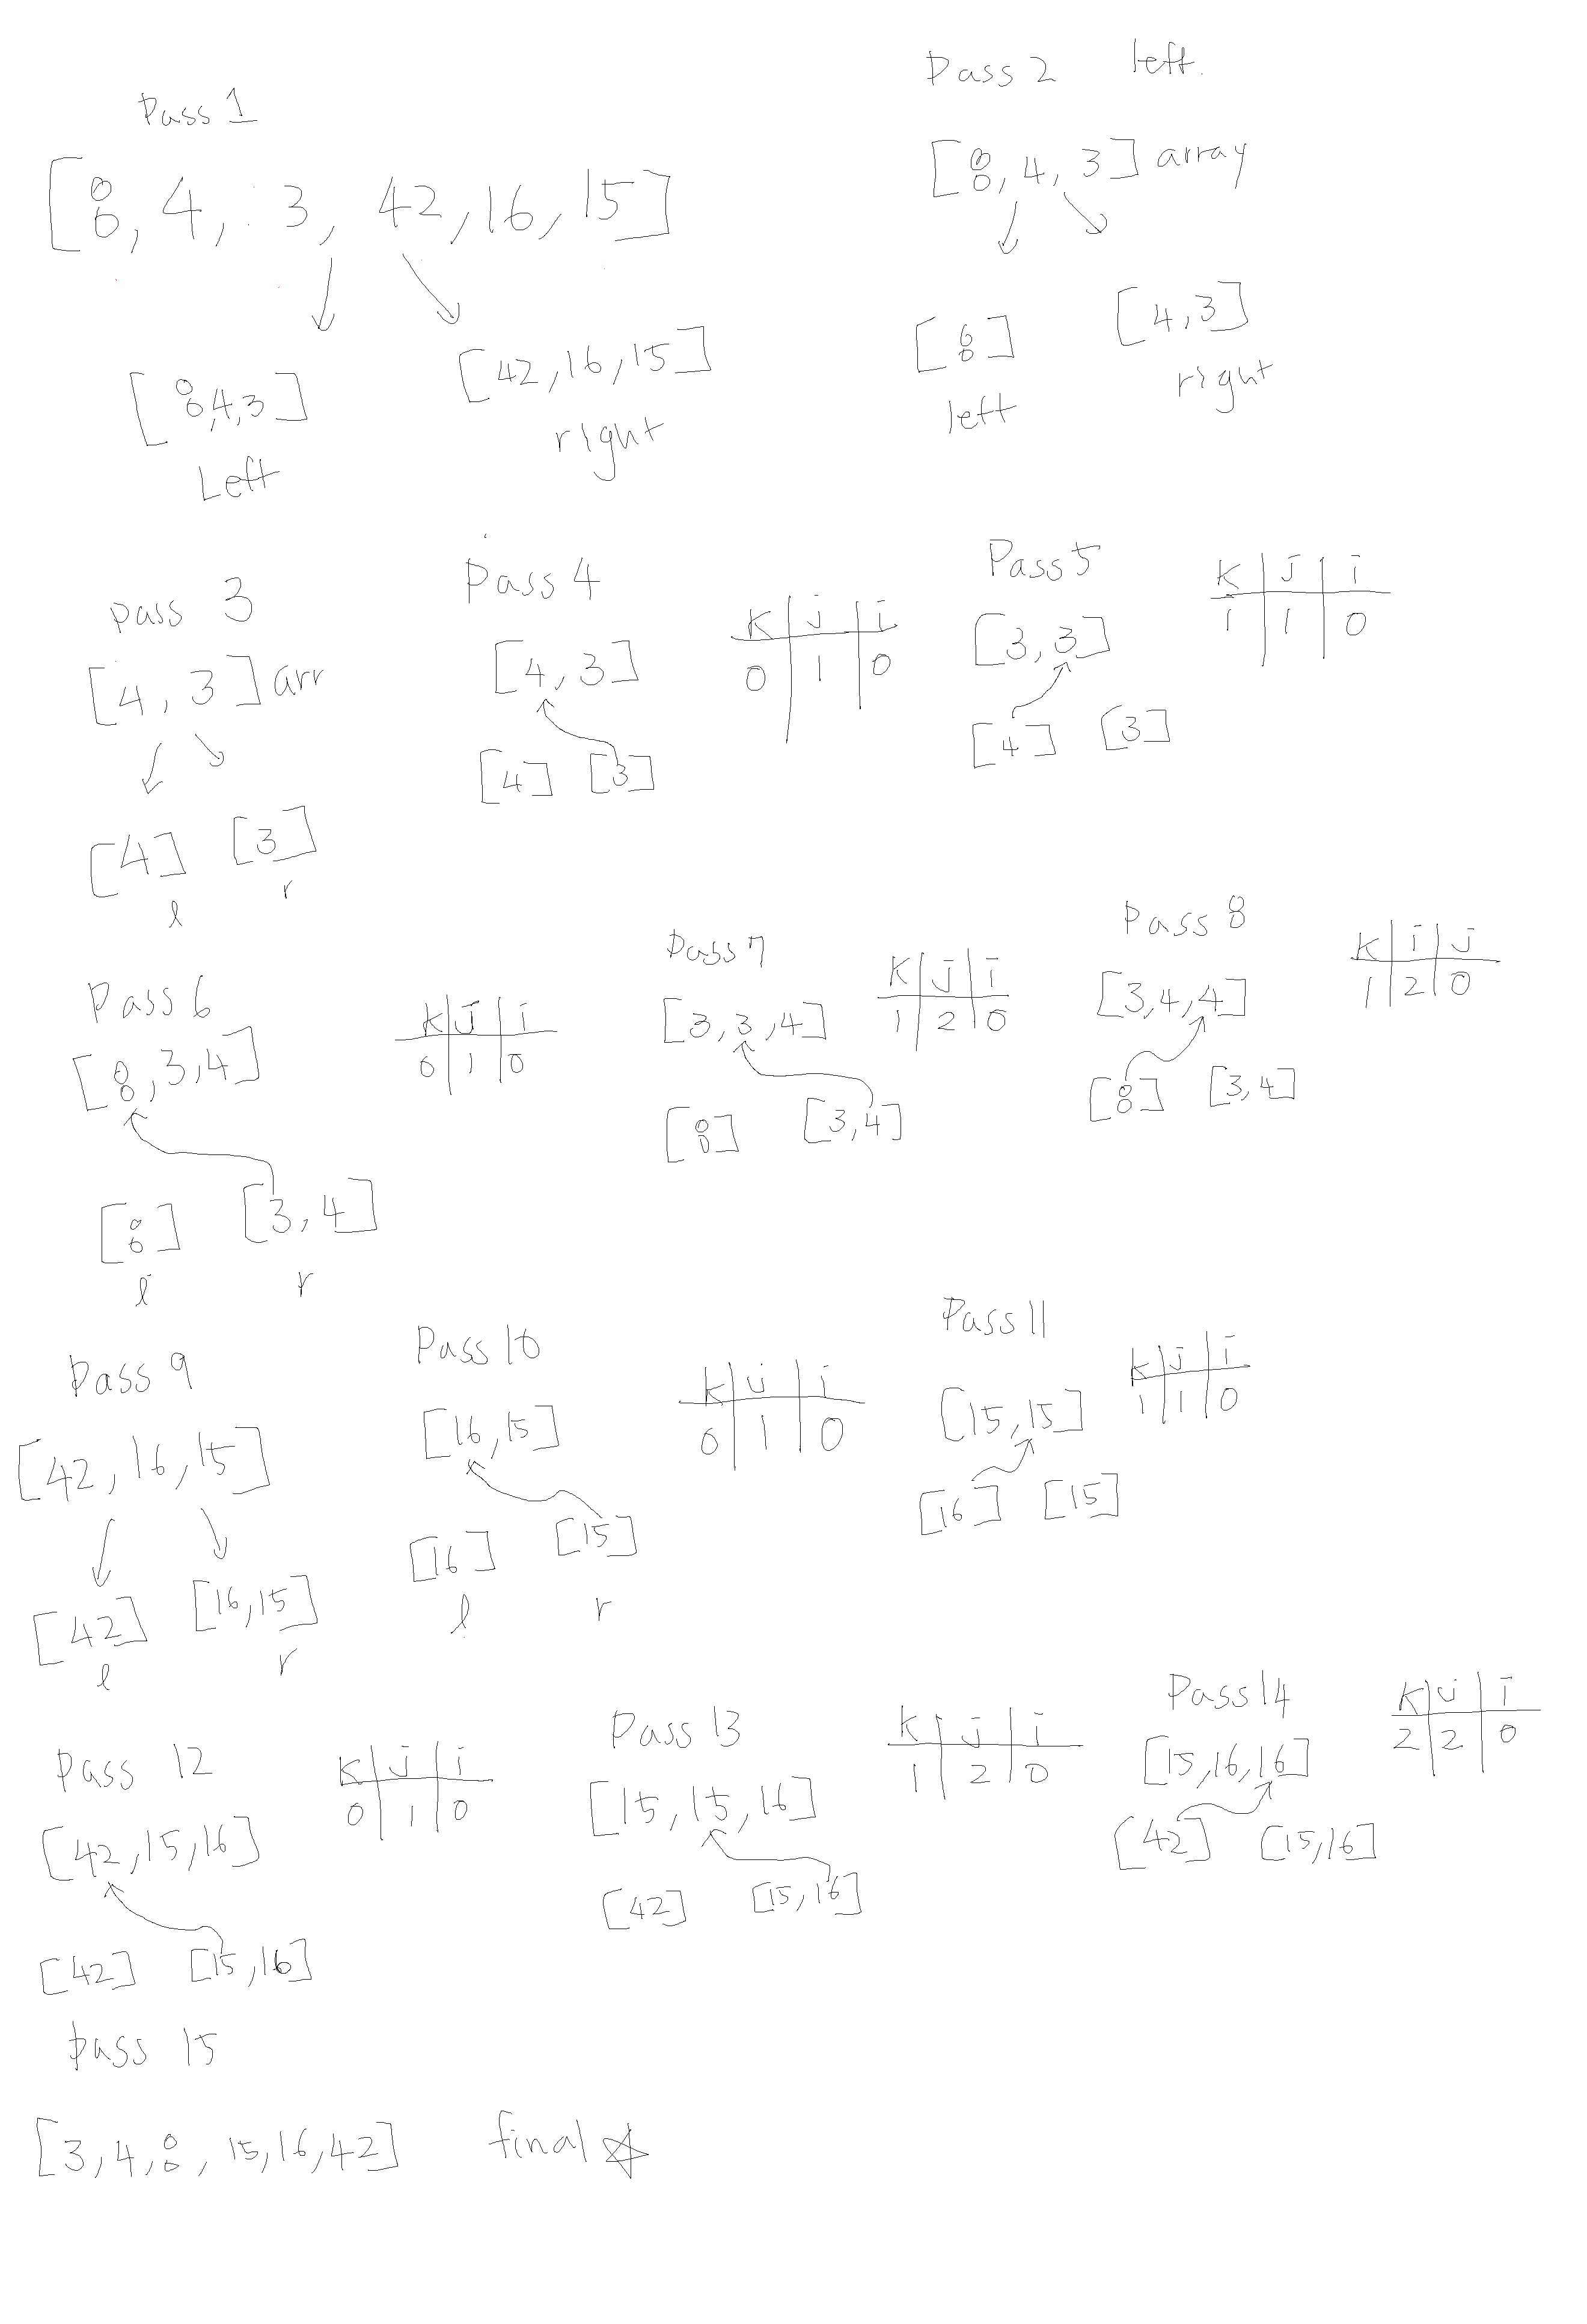 Pass 1
[8, 4, 3, 42, 16, 15]
[8,4,3]
Left
[42,16,15]
right
Pass 2 left.
[8, 4, 3] array
[8]
left
[4,3]
right
Pass 3
[4, 3] arr
[4] [3]
l r
Pass 4
[4, 3]
[4] [3]
K j i
0 1 0
Pass 5
[3, 3]
[4] [3]
K J i
1 1 0
Pass 6
[8,3,4]
[8] [3,4]
l r
K J i
0 1 0
Pass 7
[3,3,4]
[8] [3,4]
K J i
1 2 0
Pass 8
[3,4,4]
[8] [3,4]
K i J
1 2 0
Pass 9
[42,16,15]
[42] [16,15]
l r
Pass 10
[16,15]
[16] [15]
l r
K j i
0 1 0
Pass 11
[15,15]
[16] [15]
K j i
1 1 0
Pass 12
[42,15,16]
[42] [15,16]
K J i
0 1 0
Pass 13
[15,15,16]
[42] [15,16]
K j i
1 2 0
Pass 14
[15,16,16]
[42] [15,16]
K j i
2 2 0
Pass 15
[3,4,8,15,16,42] final